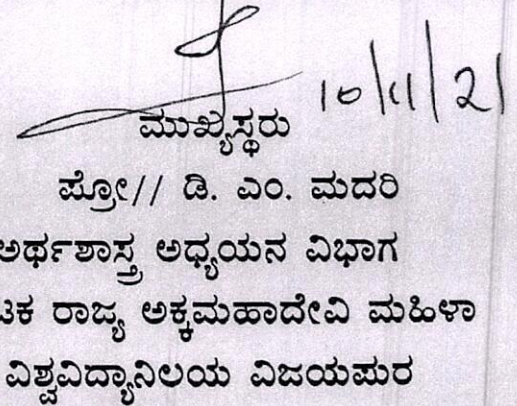 10/11/21
ಮುಖ್ಯಸ್ಥರು
ಪ್ರೋ// ಡಿ. ಎಂ. ಮದರಿ
ಅರ್ಥಶಾಸ್ತ್ರ ಅಧ್ಯಯನ ವಿಭಾಗ
ಟಕ ರಾಜ್ಯ ಅಕ್ಕಮಹಾದೇವಿ ಮಹಿಳಾ
ವಿಶ್ವವಿದ್ಯಾನಿಲಯ ವಿಜಯಪುರ